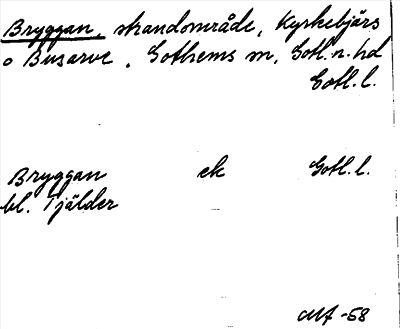 Bryggan, strandområde, Kyrkebjärs
o Busarve, Gothems sn, Gotl. n. hd
Gotl. l.
Bryggan ek Gotl. l.
bl. Tjälder
-58